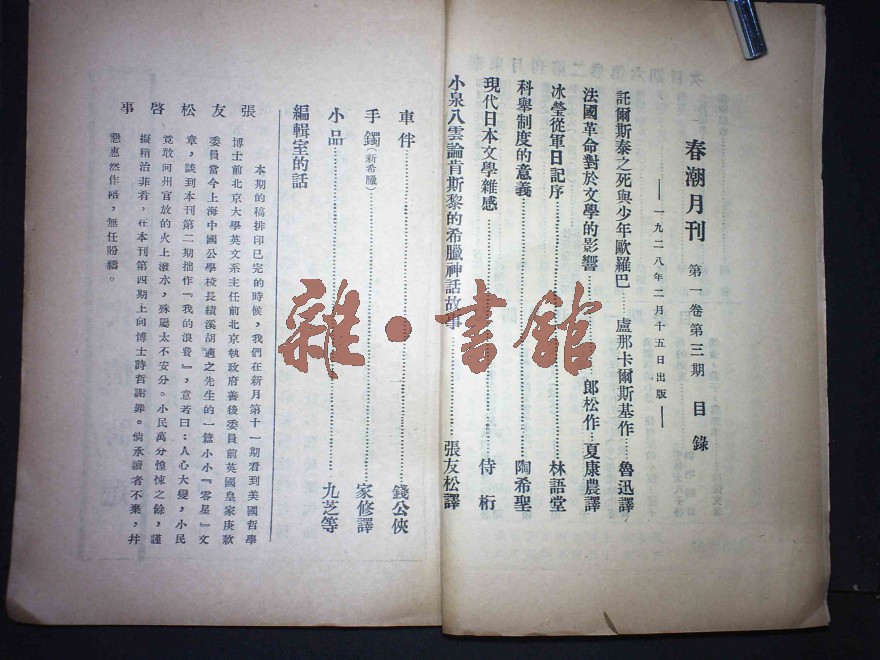 春潮月刊 第一卷第三期 目錄
——一九二八年二月十五日出版——
託爾斯泰之死與少年歐羅巴……盧那卡爾斯基作…魯迅譯
法國革命對於文學的影響……郎松作…夏康農譯
冰瑩從軍日記序……林語堂
科舉制度的意義……陶希聖
現代日本文學雜感……侍桁
小泉八雲論肯斯黎的希臘神話故事……張友松譯
車伴……錢公俠
手鐲(新希臘)……家修譯
小品……九芝等
編輯室的話
張友松啓事
本期的稿排印已完的時候，我們在新月第十一期看到美國哲學
博士前北京大學英文系主任前北京執政府善後委員前英國皇家庚款
委員當今上海中國公學校長績溪胡適之先生的一篇小小『零星』文
章，談到本刊第二期拙作『我的浪費』，意若曰：人心大變，小民
竟敢向州官放的火上潑水，殊屬太不安分。小民萬分惶悚之餘，謹
擬稍治菲肴，在本刊第四期上向博士詩哲謝罪。倘承讀者不棄，幷
懇惠然作陪，無任盼禱。
雜·書館